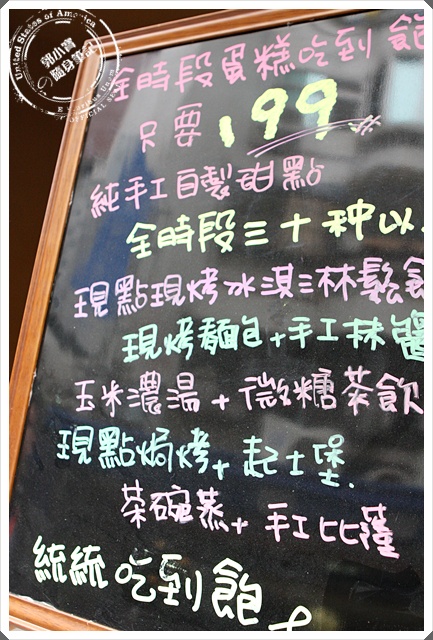 United States of America
郭小寶
隨身筆記
全時段蛋糕吃到飽
只要199
純手工自製甜點
全時段三十种以
現點現烤冰淇淋鬆餅
現烤麵包+手工抹醬
玉米濃湯+微糖茶飲
現點焗烤+起士堡.
茶碗蒸+手工比薩
統統吃到飽